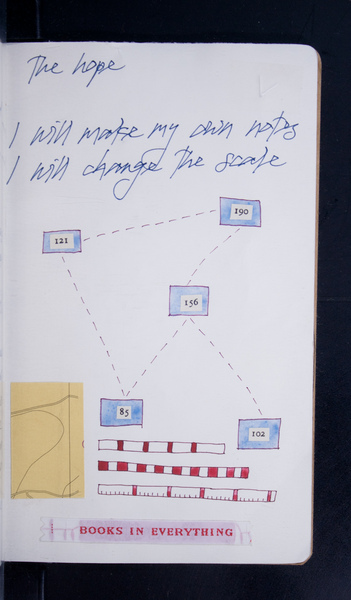 The hope
I will make my own notes
I will change the scale
190
121
156
85
102
BOOKS IN EVERYTHING